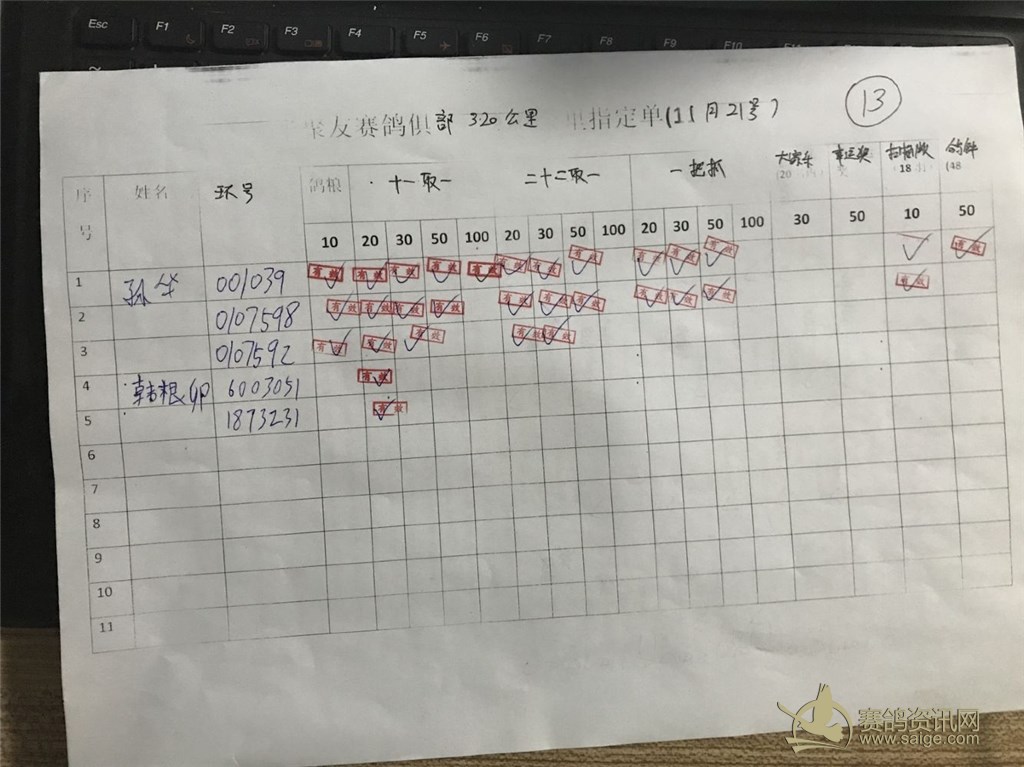 Esc F1 F2 F3 F4 F5 F6 F7 F8 F9 F10
友赛鸽俱部 320公里 指定单(11月21号) 13
序号 姓名 环号 鸽粮 十一取一 二十二取一 一把抓
(20 18 (48
10 20 30 50 100 20 30 50 100 20 30 50 100 30 50 10 50
1 孙华 001039 有效 有效 有效 有效 有效 有效 有效 有效 有效 有效 有效 有效
2 0107598 有效 有效 有效 有效 有效 有效 有效 有效 有效 有效 有效
3 0107592 有效 有效 有效 有效 有效
4 韩根卯 6003051 有效
5 1873231 有效
6
7
8
9
10
11
赛鸽资讯网
www.saige.com